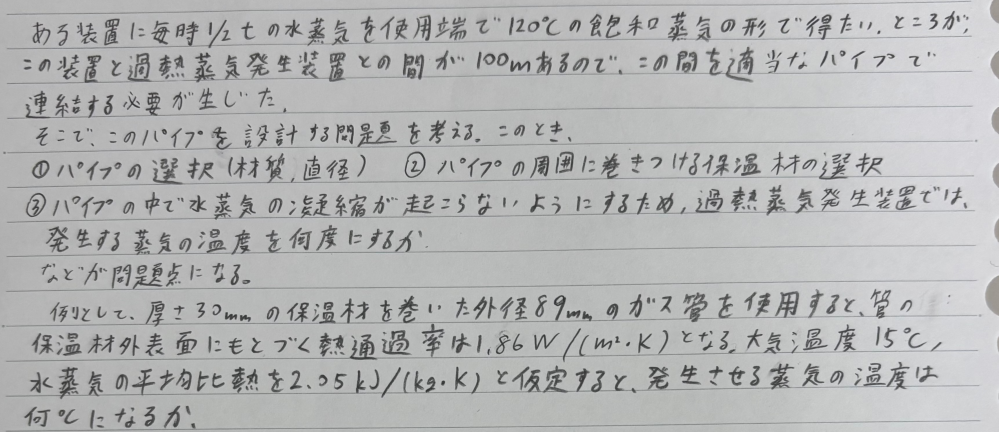 ある装置に毎時1/2 tの水蒸気を使用端で120℃の飽和蒸気の形で得たい。ところが、
この装置と過熱蒸気発生装置との間が100mあるので、この間を適当なパイプで
連結する必要が生じた。
そこで、このパイプを設計する問題を考える。このとき、
①パイプの選択(材質,直径) ②パイプの周囲に巻きつける保温材の選択
③パイプの中で水蒸気の凝縮が起こらないようにするため,過熱蒸気発生装置では、
発生する蒸気の温度を何度にするか.
などが問題点になる。
例として、厚さ30mmの保温材を巻いた外径89mmのガス管を使用すると、管の
保温材外表面にもとづく熱通過率は1.86W/(m²・K)となる。大気温度15℃,
水蒸気の平均比熱を2.05kJ/(kg・K)と仮定すると、発生させる蒸気の温度は
何℃になるか.